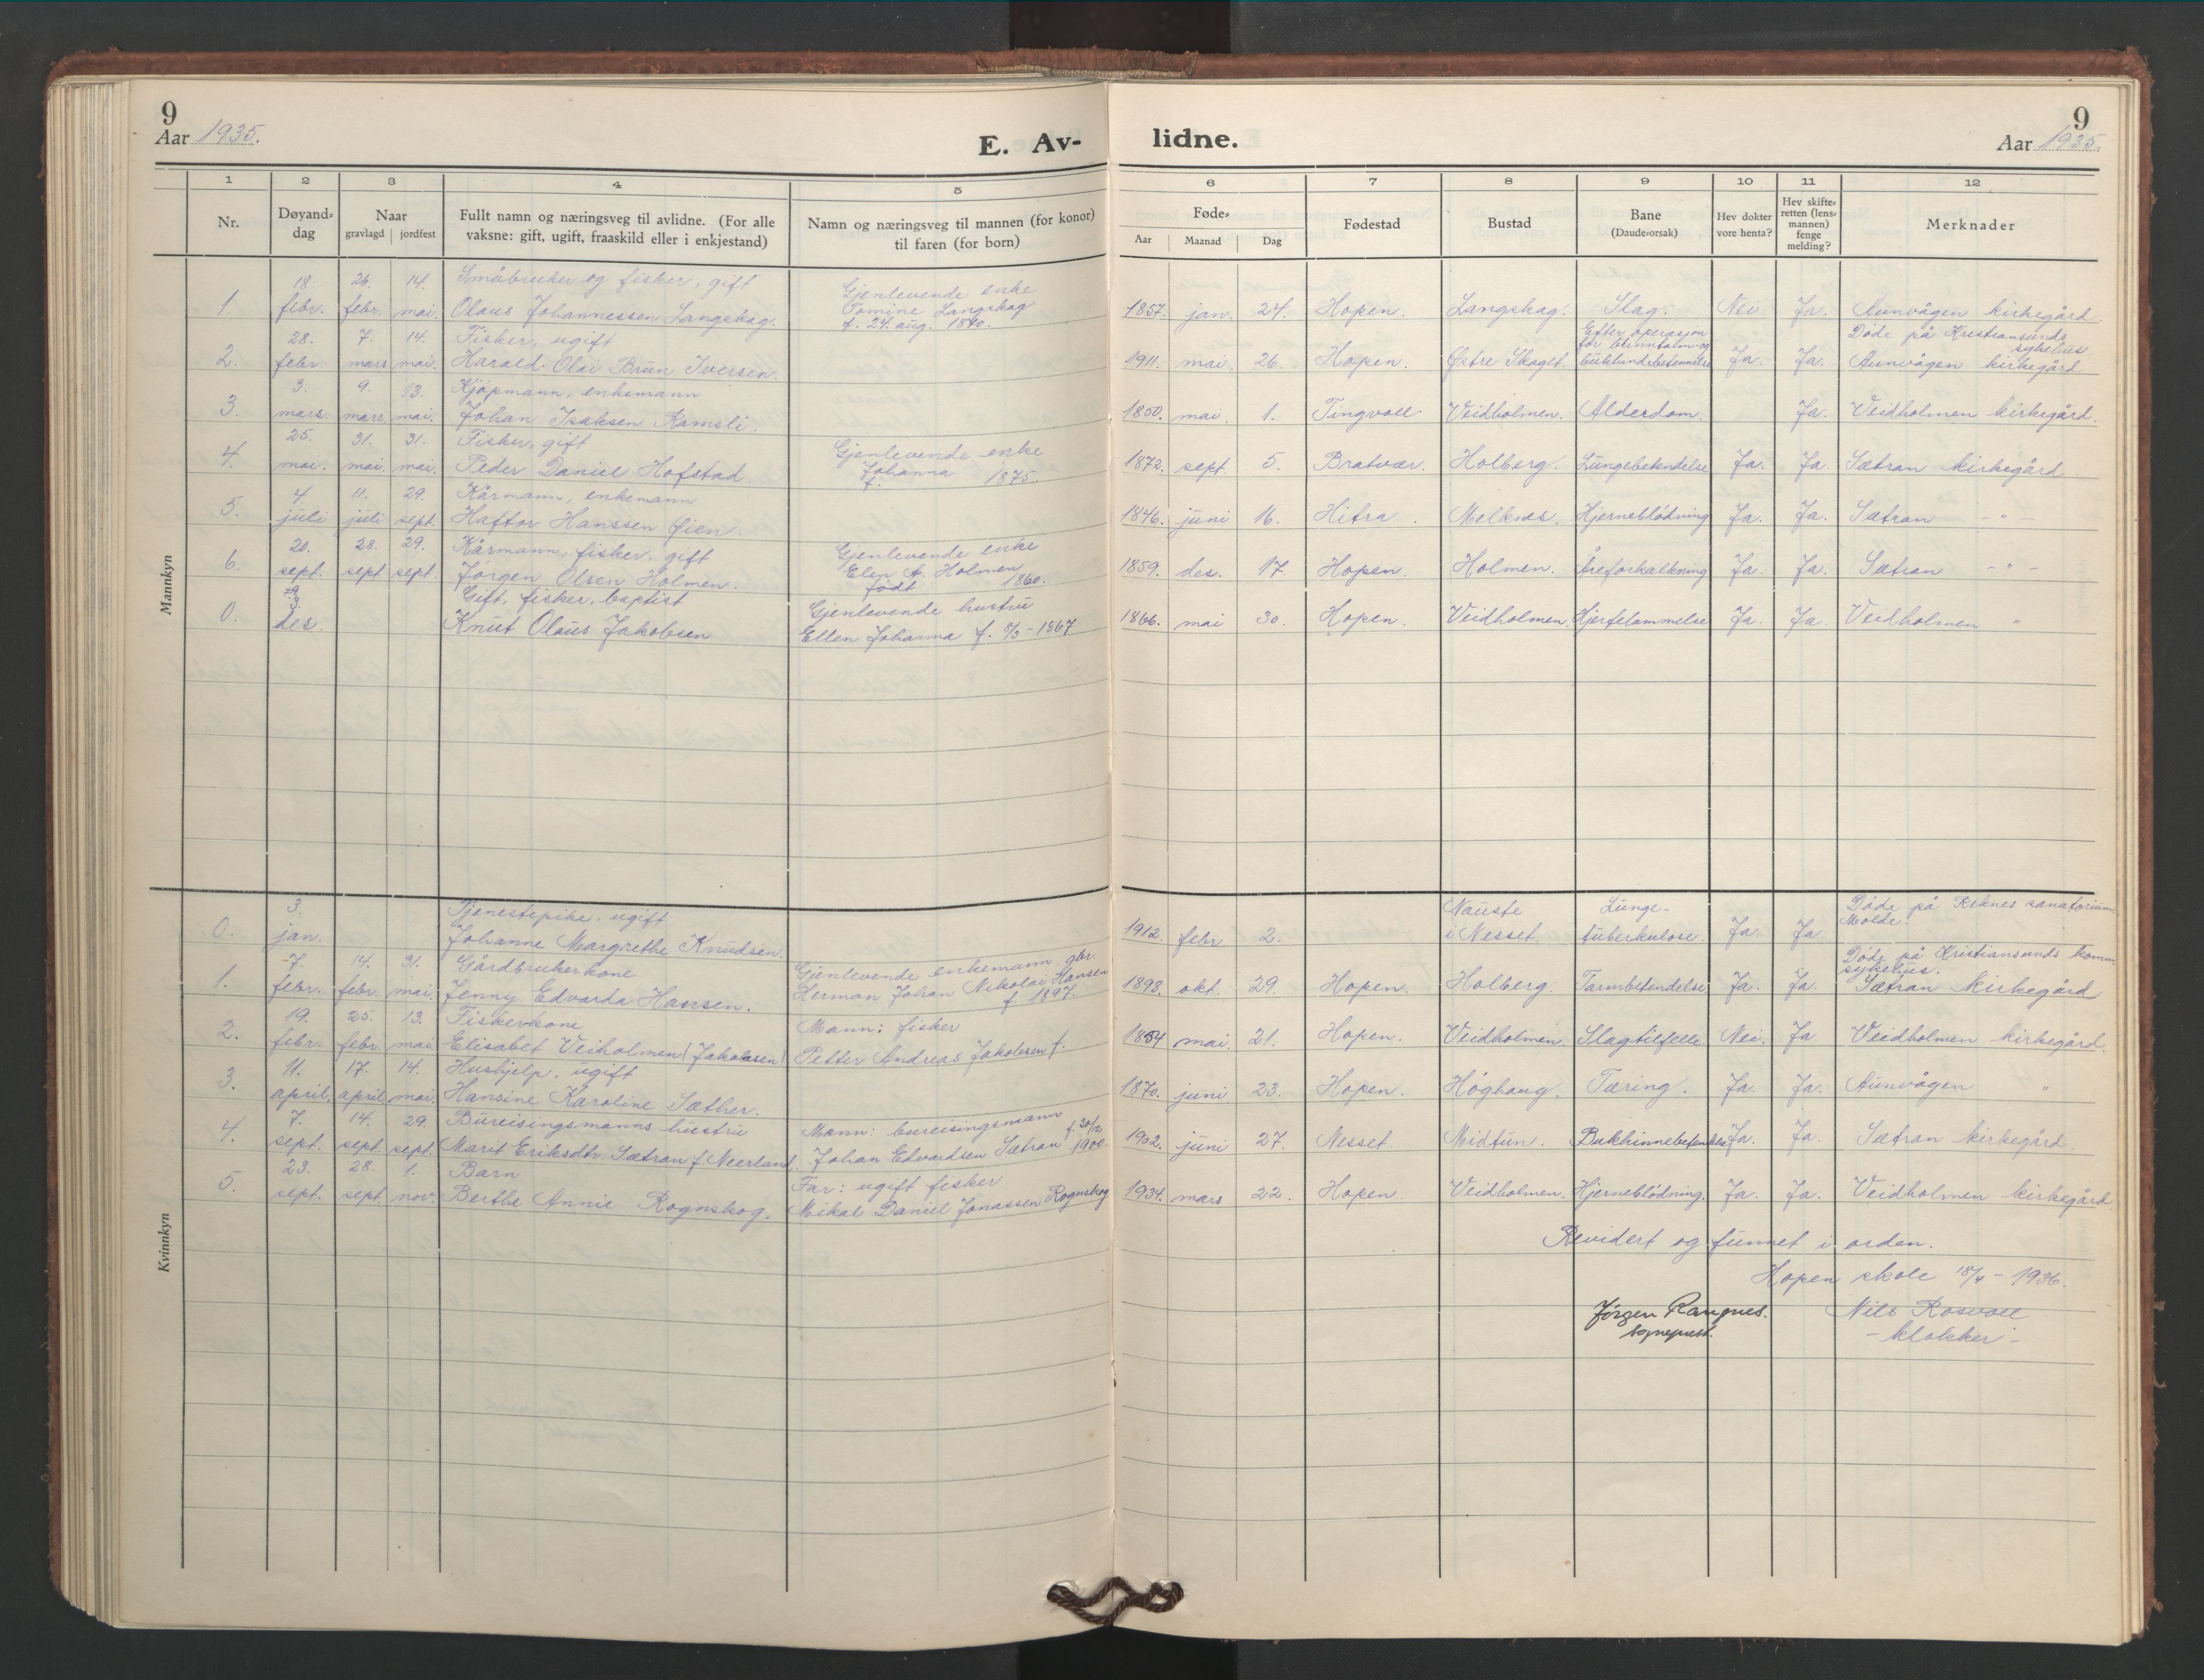 9
Aar 1935.
E. Av-
lidne.
9
Aar 1935.
1 2 3 4 5 6 7 8 9 10 11 12
Nr.
Døyand-
dag
Naar
gravlagd jordfest
Fullt namn og næringsveg til avlidne. (For alle
vaksne: gift, ugift, fraaskild eller i enkjestand)
Namn og næringsveg til mannen (for konor)
til faren (for born)
Føde-
Aar Maanad Dag
Fødestad
Bustad
Bane
(Daudeorsak)
Hev dokter
vore henta?
Hev skifte-
retten (lens-
mannen)
fenge
melding?
Merknader
Mannkyn
18. 26. 14. Småbruker og fisker, gift Gjenlevende enke
1. febr. febr. mai. Olaus Johannessen Langskag. Tomine Langskag 1857. jan. 24. Hopen. Langskag. Slag. Nei. Ja. Aunvågen kirkegård.
f. 24. aug. 1870.
28. 7. 14. Fisker, ugift Efter operasjon Døde på Kristiansunds
for blinntarm-og sykehus
2. febr. mars mai. Harald Olai Brun Iversen. 1911. mai. 26. Hopen. Østre Skaget. bukhindebetennelse Ja. Ja. Aunvågen kirkegård
3. 9. 13. Kjøpmann, enkemann
3. mars. mars. mai. Johan Isaksen Ramsli. 1850. mai 1. Tingvoll Veidholmen. Alderdom. Ja. Veidholmen kirkegård.
25. 31. 31. Fisker, gift Gjenlevende enke
4. mai. mai. mai. Peder Daniel Hofstad. Johanna 1872. sept. 5. Bratvær. Holberg. Lungebetendelse Ja. Ja. Sætran kirkegård.
f. 1875.
4. 11. 29. Kårmann, enkemann
5. juli juli sept. Haftor Hanssen Øien. 1846. juni 16. Hitra. Melknes. Hjerneblødning Ja. Ja. Sætran - " -
20. 28. 29. Kårmann, fisker, gift Gjenlevende enke
6. sept. sept. sept. Jørgen Olsen Holmen. Elen A. Holmen 1859. des. 17. Hopen. Holmen. Åreforkalkning Ja. Ja. Sætran - " -
født 1860.
3. Gift, fisker, baptist Gjenlevende hustru
0. des. Knut Olaus Jakobsen Ellen Johanna f. 8/3-1867 1866. mai 30. Hopen. Veidholmen. Hjertelammelse Ja. Ja. Veidholmen "
Kvinnkyn
3. Tjenestepike, ugift Nauste Lunge- Døde på Reknes sanatorium
Molde.
0. jan. Johanne Margrethe Knudsen. 1912. febr. 2. i Nesset. tuberkulose. Ja. Ja.
7. 14. 31. Gårdbrukerkone Gjenlevende enkemann, gbr. Døde på Kristiansunds komm.
sykehus.
1. febr. febr. mai. Jenny Edvarda Hansen. Herman Johan Nikolai Hansen 1898. okt. 29. Hopen. Holberg. Tarmbetendelse Ja. Ja. Sætran kirkegård
f. 1897.
19. 25. 13. Fiskerkone Mann: fisker
2. febr. febr. mai. Elisabet Veiholmen (Jakobsen) Petter Andreas Jakobsen †. 1854 mai. 21. Hopen. Veidholmen. Slagtilfelle. Nei. Ja. Veidholmen kirkegård.
11. 17. 14. Hushjelp, ugift
3. april. april mai. Hansine Karoline Sæther. 1870. juni 23. Hopen. Høghaug. Tæring. Ja. Ja. Aunvågen "
7. 14. 29. Bureisingsmanns hustru Mann: bureisingsmann
4. sept. sept. sept. Marit Eriksdtr. Sætran f. Neerland. Johan Edvardsen Sætran 1900. 1902. juni 27. Nesset. Midtun. Bukhinnebetendelse Ja. Ja. Sætran kirkegård.
23. 28. 1. Barn Far: ugift fisker
5. sept. sept. nov. Berthe Annie Rognskog. Mikal Daniel Jonassen Rognskog 1934. mars 22. Hopen. Veidholmen. Hjerneblødning. Ja. Ja. Veidholmen kirkegård.
Revidert og funnet i orden.
Hopen skole 18/4 - 1936.
Jørgen Rangnes. Nils Rosvoll
sogneprest. - klokker -